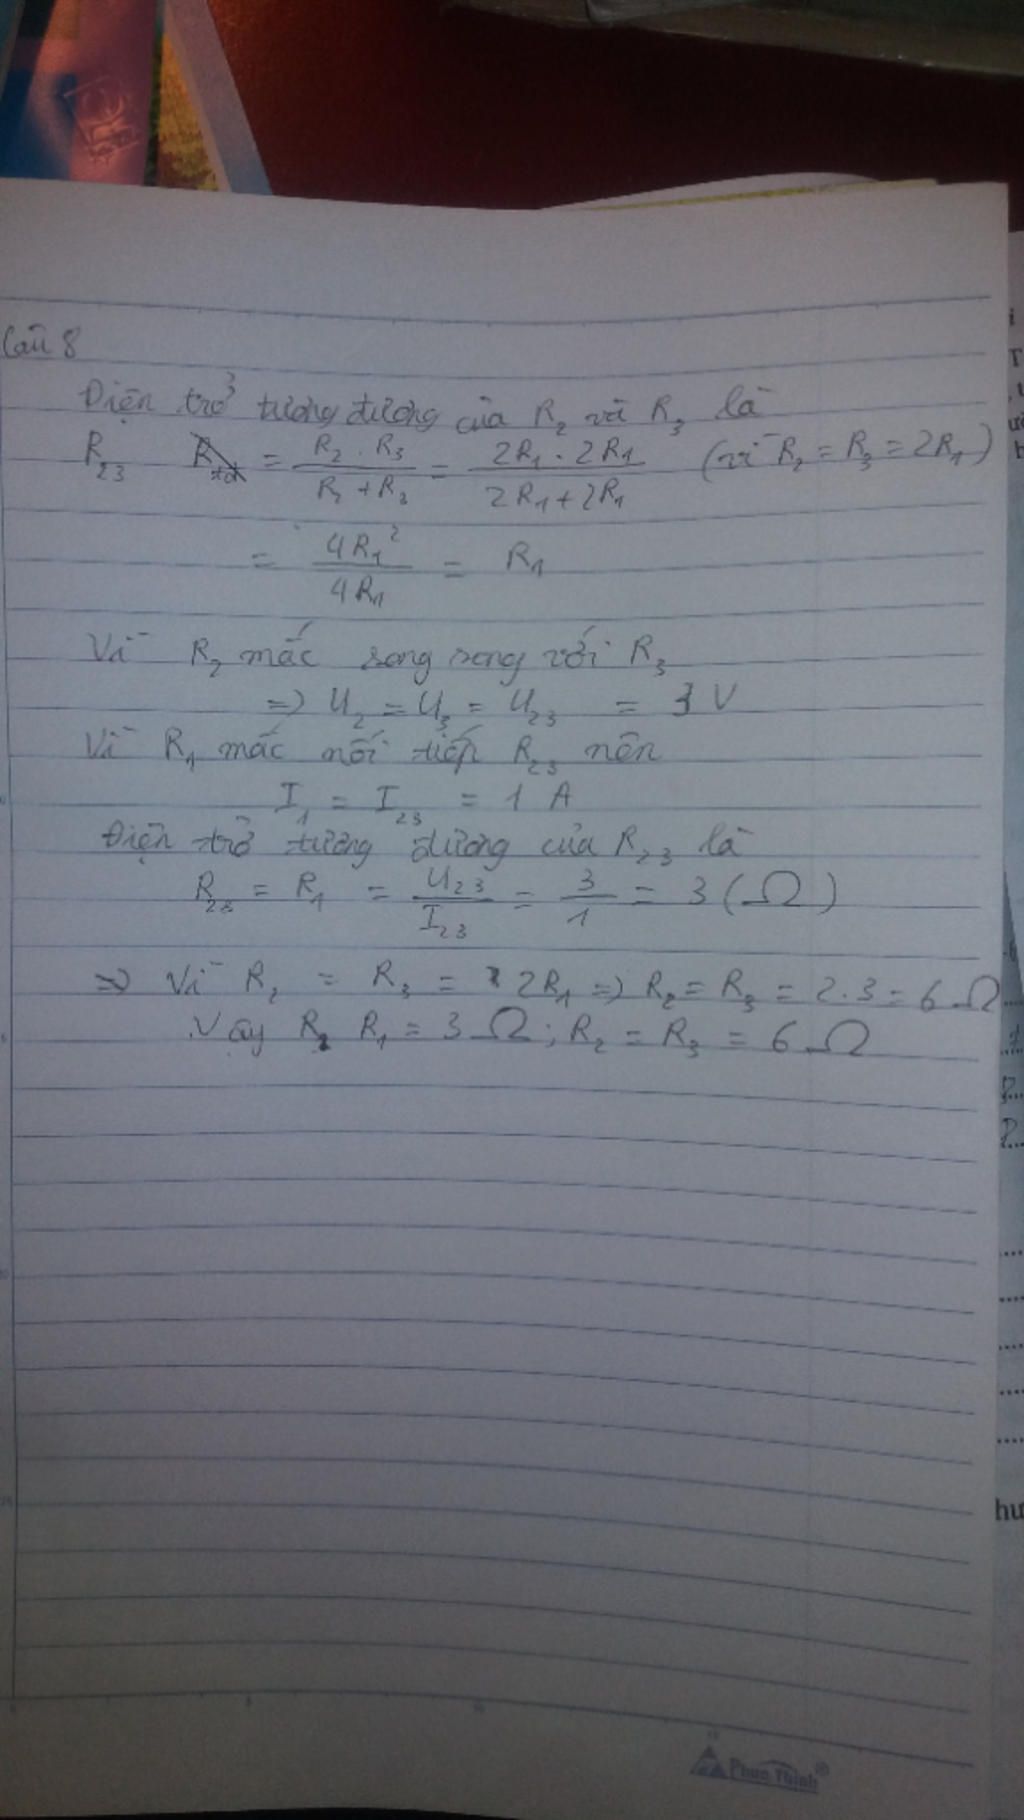 Câu 8
Điện trở tương đương của R₂ và R₃ là
R₂₃ = R₂ . R₃ / R₂ + R₃ = 2R₁ . 2R₁ / 2R₁ + 2R₁ (vì R₂ = R₃ = 2R₁)
= 4R₁² / 4R₁ = R₁
Vì R₂ mắc song song với R₃
=> U₂ = U₃ = U₂₃ = 3 V
Vì R₁ mắc nối tiếp R₂₃ nên
I₁ = I₂₃ = 1 A
Điện trở tương đương của R₂₃ là
R₂₃ = R₁ = U₂₃ / I₂₃ = 3 / 1 = 3 (Ω)
=> Vì R₂ = R₃ = 2R₁ => R₂ = R₃ = 2.3 = 6 Ω
Vậy R₁ = 3 Ω ; R₂ = R₃ = 6 Ω